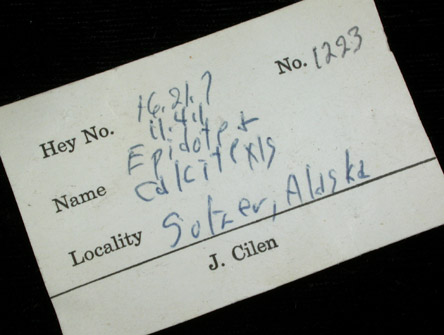 No. 1223
Hey No. 16.21.7
11.4.1
Name Epidote +
Calcite xls
Locality Solzer, Alaska
J. Cilen